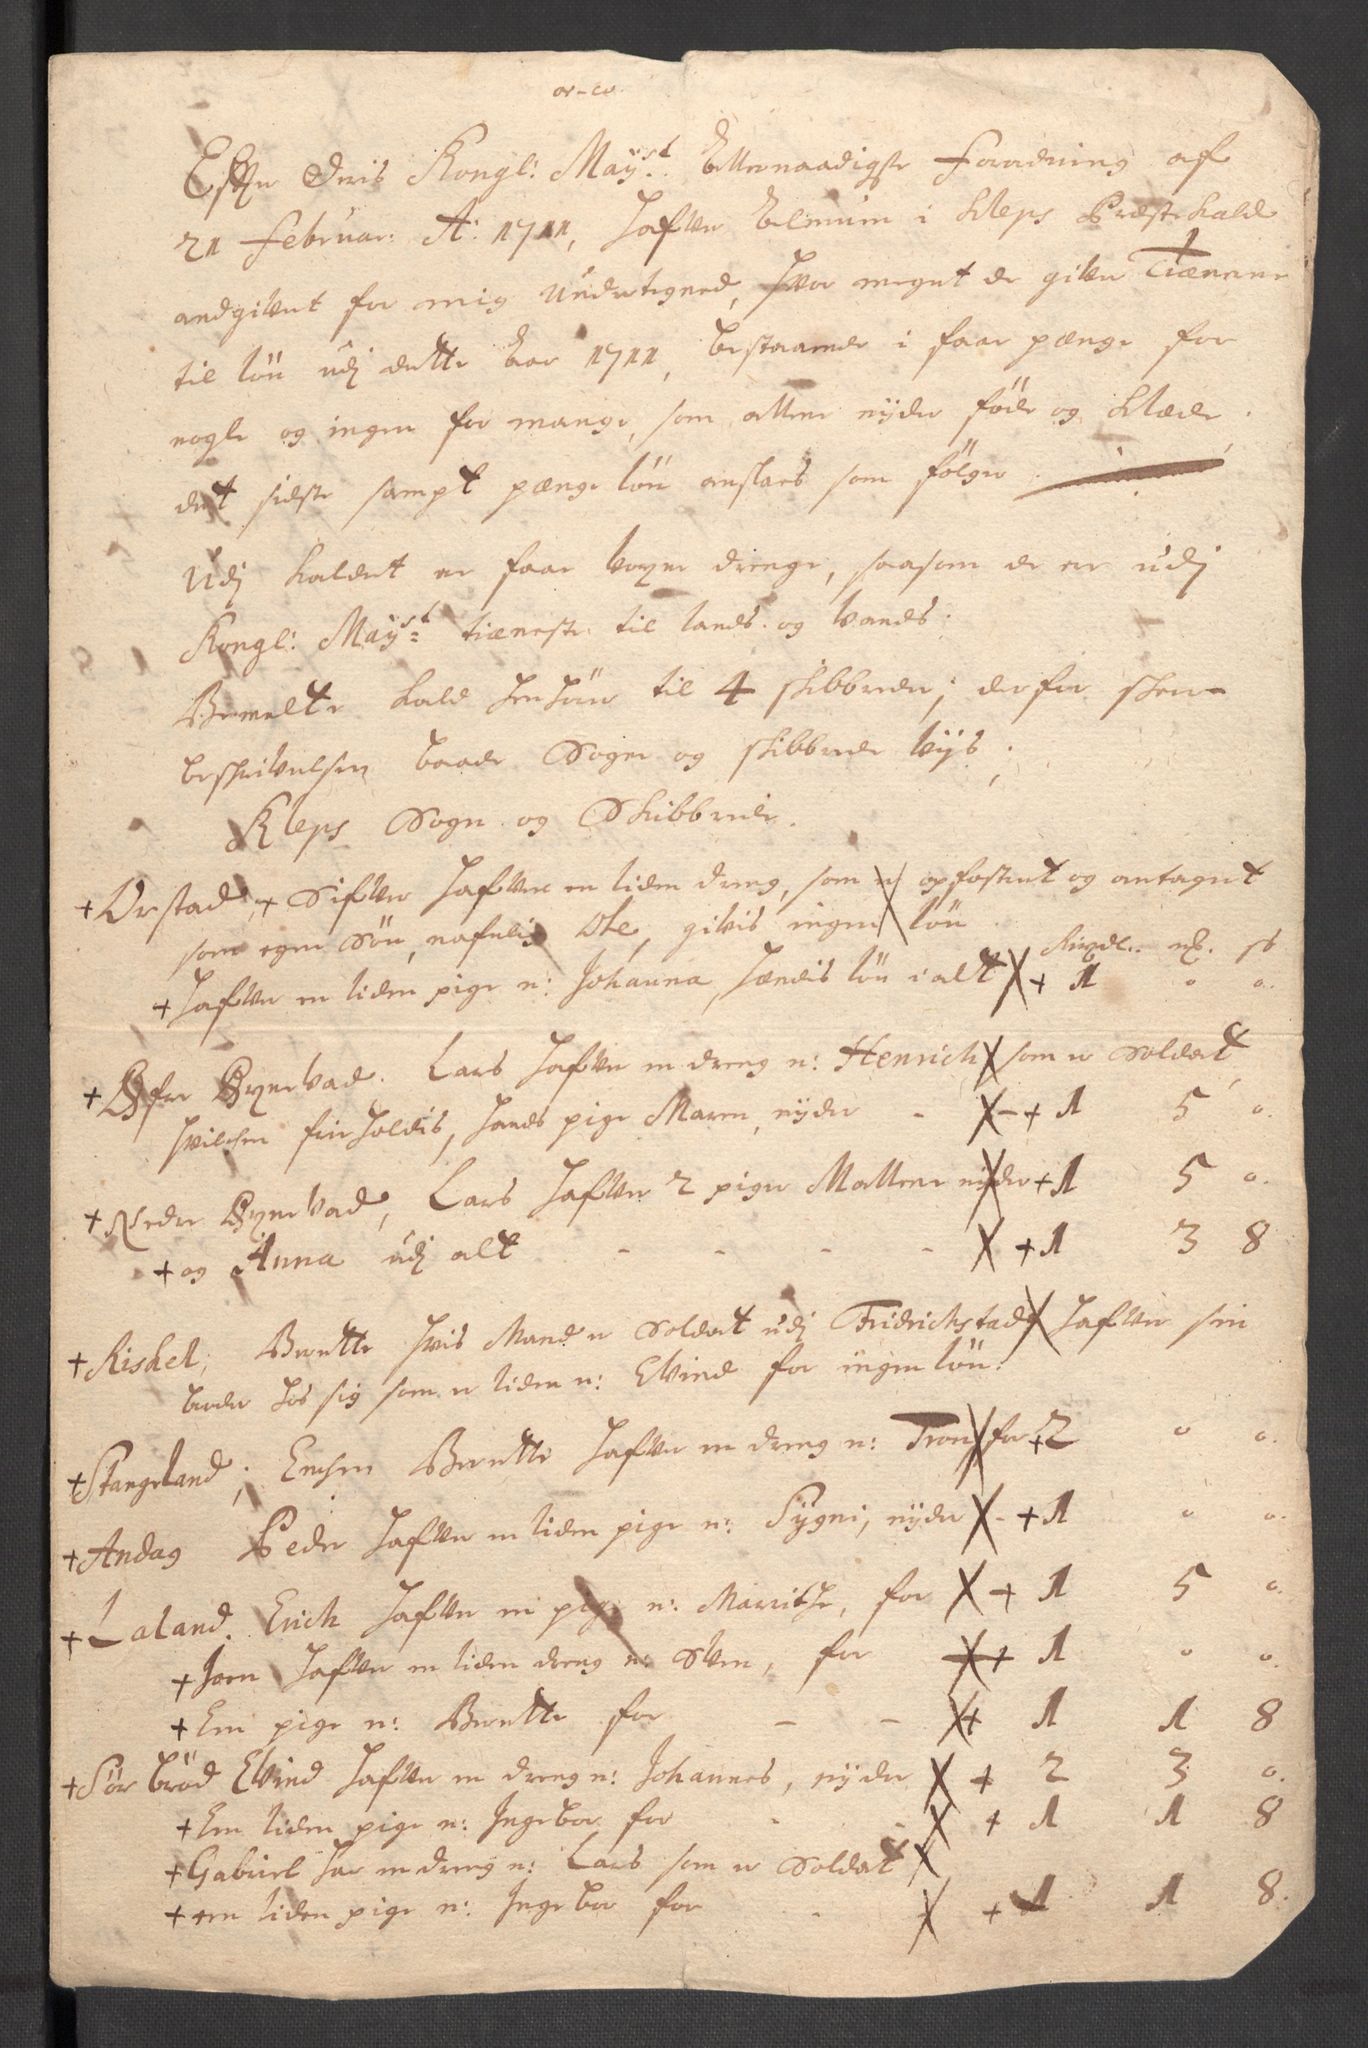 Efter Deris Kongl: Mayst. allernaadigste forordning af
21 februar: A: 1711, hafver almuen i Kleps Præstekald
andgivet for mig undertegned, hvor meget de giver Tiænerne
til løn udj dette aar 1711, bestaaende i faar penge for
nogle og ingen for mange, som allene nyder føde og klæde,
det sidste sampt penge løn anslaes som følger
Udj kaldet er faar voxne drenge, saasom de er udj
Kongl: Mayst: tieneste til lands og vands.
Bemelte kald henhører til 4 skibbreder; derfor skeer
beskrivelsen baade Sogne og skibbrede viis;
Kleps Sogn og Skibbrede.
+ Orstad, + Sifver hafver en liden dreng, som er opfostret og antaget
som egen Søn, nafnlig Ole, givis ingen løn
Rixdl. mk. sk
+ hafver en liden pige n: Johanna, hendis løn i alt + 1 0 0.
+ Øfre Øxnevad. Lars hafver en dreng n: Henrich som er Soldat,
hvilchen frieholdis, hands pige Maren, nyder - + 1 5 0.
+ Nedre Øxnevad, Lars hafver 2 piger Mallene nyder + 1 5 0.
+ og Anna udj alt - - - - + 1 3 8
+ Riskel, Berette hvis Mand er Soldat udj Fridrichstad hafver sin
broder hos sig som er liden n: Evind for ingen løn.
+ Stangeland; Enchen Berette hafver en dreng n: Tron for + 2 0 0.
+ Andag Peder hafver en liden pige n: Sygni, nyder - + 1 0 0.
+ Laland. Erich hafver en pige n: Marrithe, for + 1 5 0.
+ Joen hafver en liden dreng n: Sven, for + 1 0 0.
+ Een pige n: Berette for - - + 1 1 8
+ Sør brød Evind hafver en dreng n: Johannes, nyder + 2 3 0.
+ Een liden pige n: Ingebor for - - + 1 1 8
+ Gabriel har en dreng n: Lars som er Soldat
+ + en liden pige n: Ingebor for - + 1 1 8.